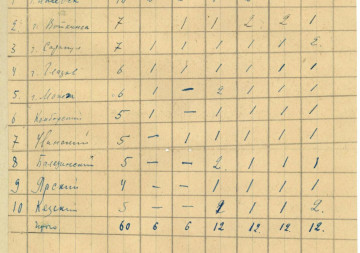 2 г. Воткинск 7 1 1 2 2 1
3 г. Сарапул 7 1 1 1 1 1 2
4 г. Глазов 6 1 1 1 1 1 1
5 г. Можга 6 1 – 2 1 1 1
6 5 1 – 1 1 1 1
7 Увинский 5 – 1 1 1 1 1
8 Балезинский 5 – – 2 1 1 1
9 Ярский 4 – – 1 1 1 1
10 Кезский 5 – – 2 1 2
Итого 60 6 6 12 12 12 12